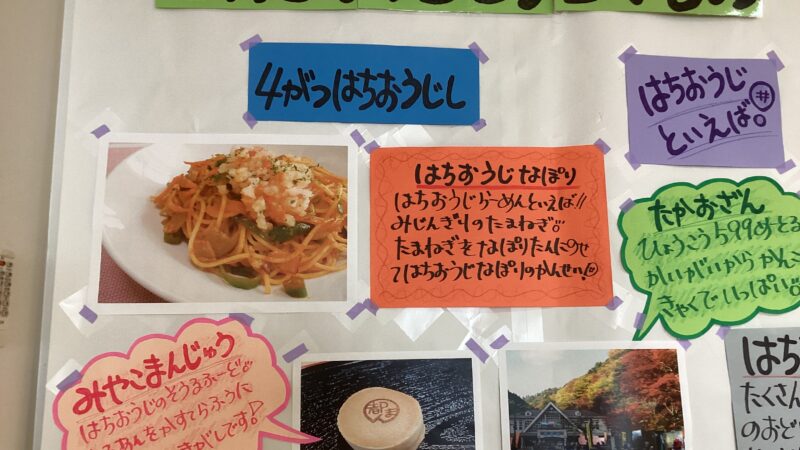 4がつはちおうじし
はちおうじ
といえば。
#
はちおうじなぽり
はちおうじらーめんといえば!!
みじんぎりのたまねぎ。
たまねぎをなぽりたんにのせ
てはちおうじなぽりのかんせい!
たかおざん
ひょうこう599めとる
かいがいからかんこ
きゃくでいっぱい。
みやこまんじゅう
はちおうじのそうるふーど。
あんをかすてらふうに
がしです!
都まん
はち
たくさん
のおど